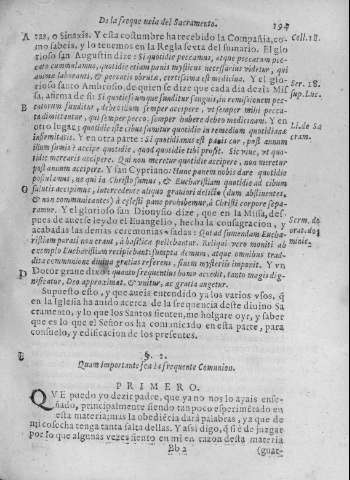 De la freque ncia del Sacramento. 194
A zas, o Sinaxis. Y esta costumbre ha recebido la Compañia, co-
mo sabeis, y lo tenemos en la Regla sexta del sumario. El glo
rioso san Augustin dize: Si quotidie peccamus, atque peccatorum
quotidie est
animo laborantis, & peccatis obruta, certissima est medicina. Y el glo-
rioso santo Ambrosio, de quien se dize que cada dia dezia Mis
sa, afirma de si: Si quotiescumque funditur sanguis, in remissionem pec-
B catorum funditur, debeo illum semper accipere, vt semper mihi pecca
ta dimittantur, qui semper pecco: semper habere debeo medicinam. Y en
otro lugar: quotidie iste cibus sumitur quotidie in remedium quotidianæ
infirmitatis. Y en otra parte: si quotidianus est panis cur, post annum
illum sumis? accipe quotidie, quod quotidie tibi prosit. Sic viue, vt quo-
tidie merearis accipere. Qui non meretur quotidie accipere, non meretur
post annum accipere. Y san Cypriano: Hunc panem nobis dare quotidie
postulamus, ne qui in Christo sumus, & Eucharistiam quotidie ad cibum
C salutis accipimus, intercedente aliquo grauiori delicto (dum abstinentes,
& non communicantes) à cælesti pane prohibemur, à Christi corpore sepa-
remur. Y el glorioso san Dionysio dize, que en la Missa, des-
pues de auerse leydo el Euangelio, hecha la consagracion, y
acabadas las demas ceremonias usadas: Quotad sumendam Eucha-
ristiam parati non erant, à basilica pellebantur. Reliqui vero moniti ab
exemplo Eucharistiam recipiebant: sumpta demum, atque omnibus tra-
dita communione diuina gratias referens, finem mysterijs imponit. Y vn
D Dotor grande dixo: quanto frequentius homo accedit, tanto magis dig-
nificatur, Deo approximat, & vnitur, ac gratia augetur.
Supuesto esto, y que aueis entendido ya los varios vsos, q̃
en la Iglesia ha auido acerca de la frequencia deste diuino Sa
cramento, y lo que los Santos sienten, me holgare oyr, y saber
que es lo que el Señor os ha comunicado en esta parte, para
consuelo, y edificacion de los presentes.
E §. 2.
Quam importante sea la frequente Comunion.
PRIMERO.
QVE puedo yo dezir padre, que ya no os lo ayais ense-
ñado, principalmente siendo tan poco esperimẽtado en
esta materia; mas la obediẽcia dará palabras, ya que de
mi cosecha tenga tanta falta dellas. Y assi digo, q̃ si é de juzgar
por lo que algunas vezes siento en mi en razon desta materia
Bb 2 (guar-
Coll. 18.
Ser. 18.
sup. Luc.
Li. de Sa
cram.
Serm. de